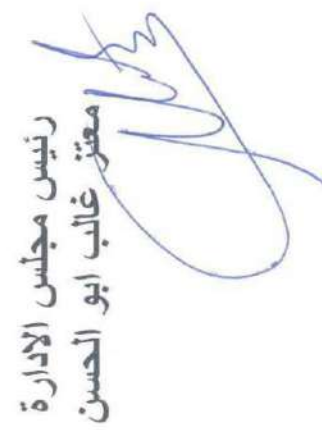 رئيس مجلس الادارة
معتز غالب ابو الحسن